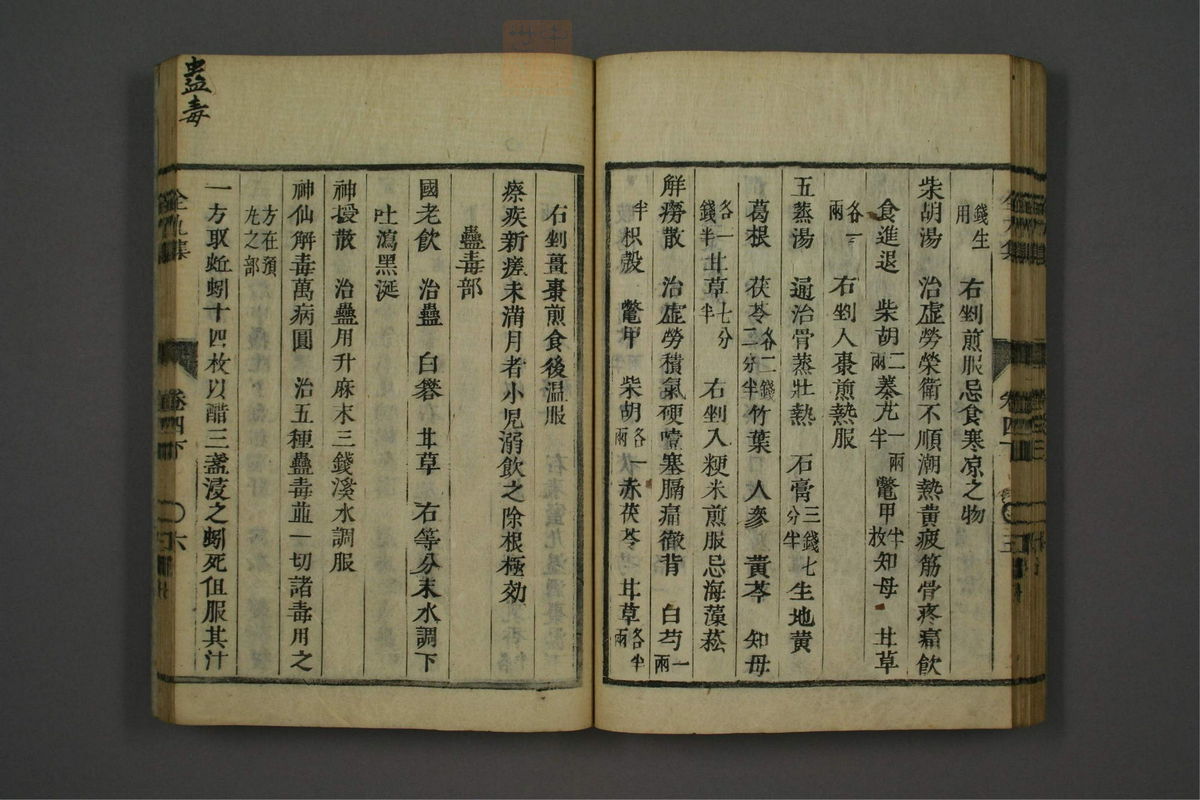 錢生用　右剉煎服忌食寒凉之物
柴胡湯　治虛勞榮衛不順潮熱黃疲筋骨疼痛飲
食進退　柴胡二兩　秦艽一兩半　鱉甲半枚　知母　甘草
各一兩　右剉人棗煎熱服
五蒸湯　遍治骨蒸壯熱　石膏三錢七分半　生地黃
葛根　茯苓各二錢二分半　竹葉　人參　黃芩　知母
各一錢半　甘草七分半　右剉入粳米煎服忌海藻菘
解癆散　治虛勞積氣硬噎塞膈痛徹背　白芍一兩
半　枳殼　鱉甲　柴胡各一兩　赤茯苓　甘草各半兩
右剉薑棗煎食後温服
瘵疾新瘥未満月者小児溺飲之除根極効
蠱毒部
國老飲　治蠱　白礬　甘草　右等分末水調下
吐瀉黑涎
神授散　治蠱用升麻末三錢溪水調服
神仙解毒萬病圓　治五種蠱毒並一切諸毒用之
方在預九之部
一方取蚯蚓十四枚以醋三盞浸之蚓死但服其汁
卷四下
六
蠱毒